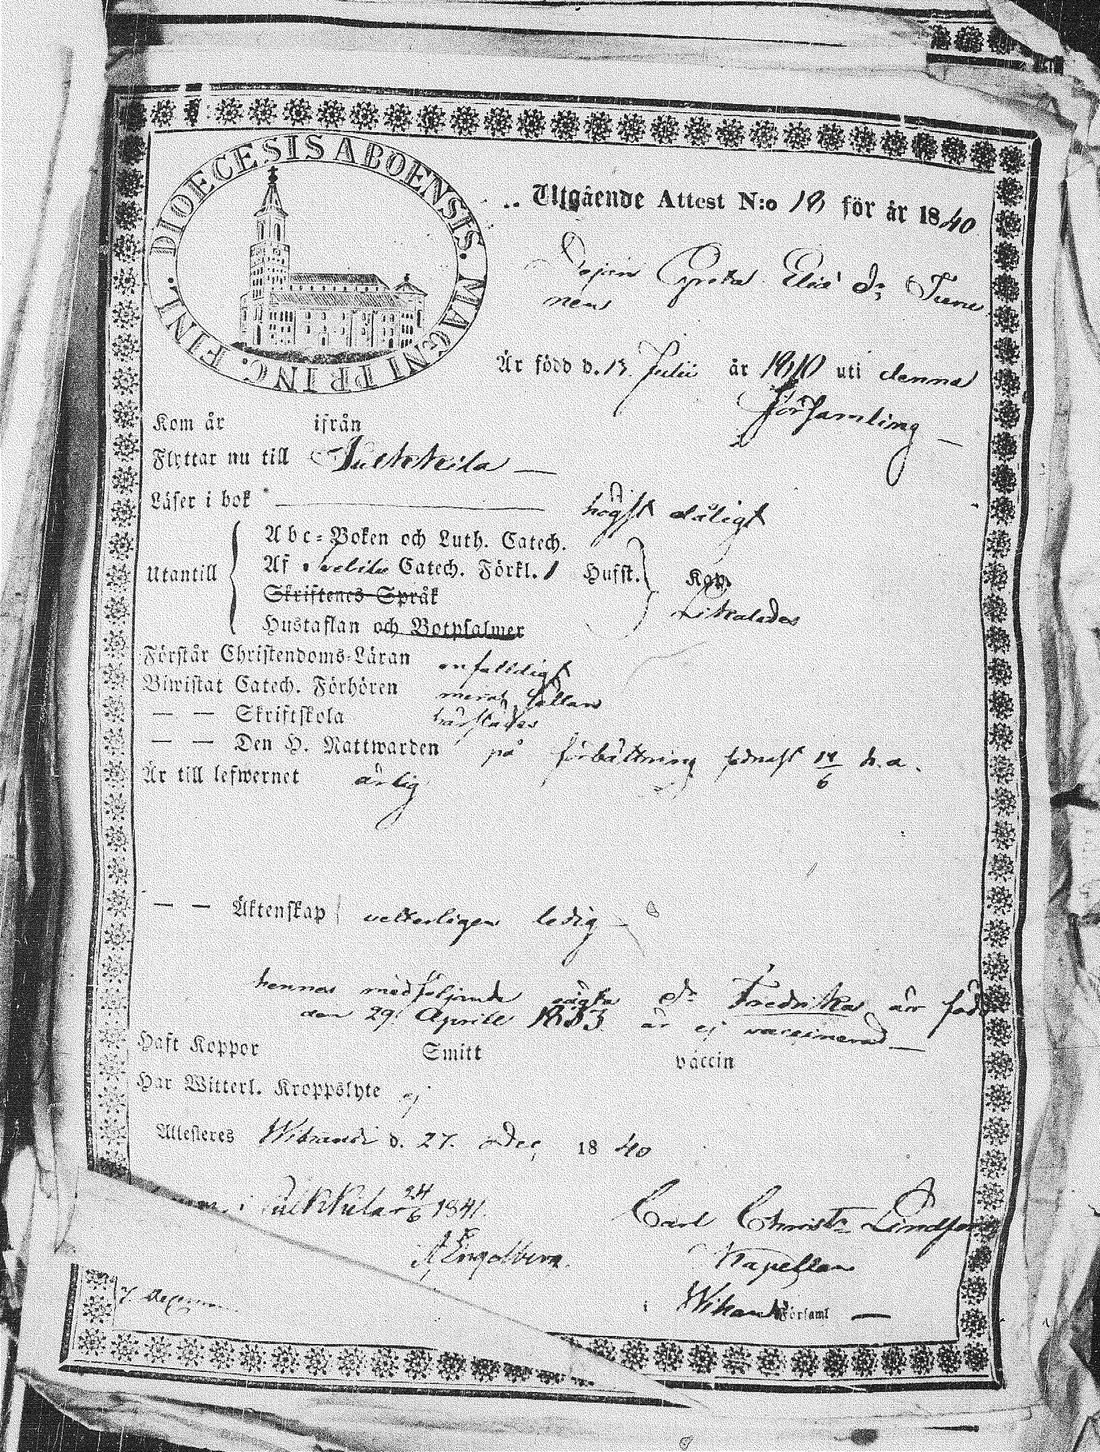 DIOECESIS ABOENSIS. MAGNI PRINC. FINL.
Utgående Attest N:o 18 för år 1840
Pojan Greta Elis dr
nens
Är född d. 13 Julii år 1810 uti denna
församling —
Kom år ifrån
Flyttar nu till Pulkkila —
Läser i bok högst dåligt
Utantill
Abc-Boken och Luth. Catech.
Af Catech. Förkl. 1 Husft. Kap.
Skriftenes Språk
Likaledes
Hustaflan och Botpsalmer
Förstår Christendoms-Läran enfaldigt
Biwistat Catech. Förhören merat sällan
— — Skriftskola härstädes
— — Den H. Nattwarden på förbättring sednast 14/6 h.a.
Är till lefwernet ärlig
— — Äktenskap vetterligen ledig —
hennes medföljande oägta dr Fredrika är född
den 29 Aprill 1833 är ej vaccinerad —
Haft Koppor Smitt vaccin
Har Witterl. Kroppslyte ej
Attesteres d. 27. Dec. 1840
i Pulkkila 24/6 1841.
Carl Christ. Lindfors
A Engelberg.
Kapellan
i församl —